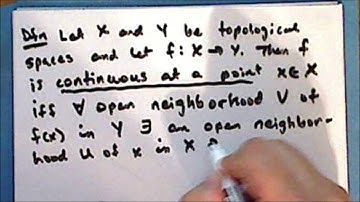 Dfn Let X and Y be topological
spaces and let f: X → Y. Then f
is continuous at a point x∈X
iff ∀ open neighborhood V of
f(x) in Y ∃ an open neighbor-
hood U of x in X